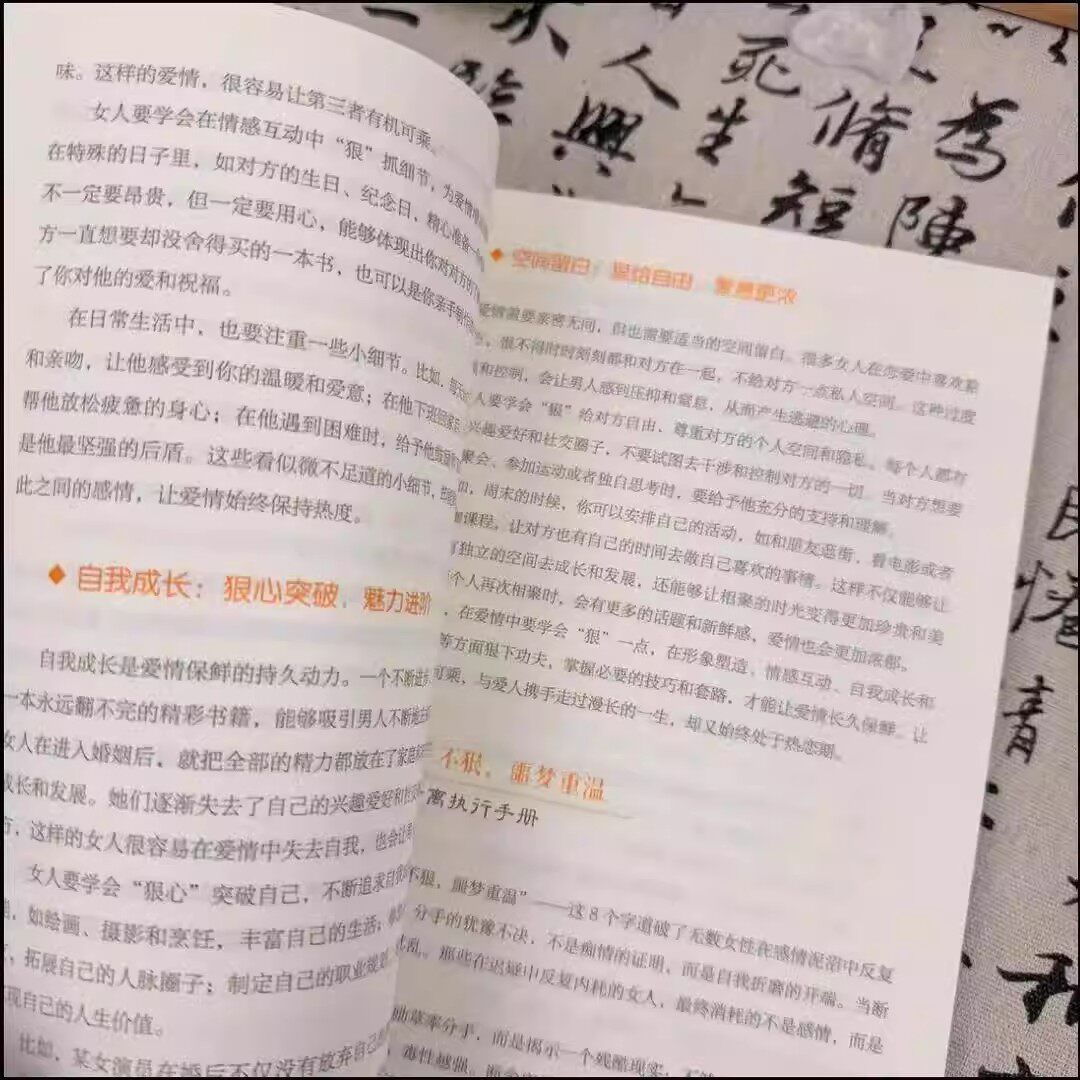 味。这样的爱情，很容易让第三者有机可乘。
女人要学会在情感互动中“狠”抓细节，为爱情
在特殊的日子里，如对方的生日、纪念日，精心准备一
不一定要昂贵，但一定要用心，能够体现出你对对方的
方一直想要却没舍得买的一本书，也可以是你亲手制作
了你对他的爱和祝福。
在日常生活中，也要注重一些小细节。比如，每天
和亲吻，让他感受到你的温暖和爱意；在他下班回家
帮他放松疲惫的身心；在他遇到困难时，给予他
是他最坚强的后盾。这些看似微不足道的小细节，
此之间的感情，让爱情始终保持热度。
◆ 自我成长：狠心突破，魅力进阶
自我成长是爱情保鲜的持久动力。一个不断进
一本永远翻不完的精彩书籍，能够吸引男人不断地
女人在进入婚姻后，就把全部的精力都放在了家庭
成长和发展。她们逐渐失去了自己的兴趣爱好和
，这样的女人很容易在爱情中失去自我，也会让
女人要学会“狠心”突破自己，不断追求自我
，如绘画、摄影和烹饪，丰富自己的生活；
，拓展自己的人脉圈子；制定自己的职业规划，
现自己的人生价值。
比如，某女演员在婚后不仅没有放弃自己
◆ 空间留白：狠给自由，爱意更浓
爱情需要亲密无间，但也需要适当的空间留白。很多女人在恋爱中喜欢黏
，恨不得时时刻刻都和对方在一起，不给对方一点私人空间。这种过度
和控制，会让男人感到压抑和窒息，从而产生逃避的心理。
人要学会“狠”给对方自由，尊重对方的个人空间和隐私。每个人都有
兴趣爱好和社交圈子，不要试图去干涉和控制对方的一切。当对方想要
聚会、参加运动或者独自思考时，要给予他充分的支持和理解。
如，周末的时候，你可以安排自己的活动，如和朋友逛街，看电影或者
课程，让对方也有自己的时间去做自己喜欢的事情。这样不仅能够让
独立的空间去成长和发展，还能够让相聚的时光变得更加珍贵和美
个人再次相聚时，会有更多的话题和新鲜感，爱情也会更加浓郁。
，在爱情中要学会“狠”一点，在形象塑造、情感互动、自我成长和
等方面狠下功夫，掌握必要的技巧和套路，才能让爱情长久保鲜。让
可乘，与爱人携手走过漫长的一生，却又始终处于热恋期。
不狠，噩梦重温
离执行手册
不狠，噩梦重温”——这8个字道破了无数女性在感情泥沼中反复
分手的犹豫不决，不是痴情的证明，而是自我折磨的开端。当断
乱。那些在迟疑中反复内耗的女人，最终消耗的不是感情，而是
草率分手，而是揭示一个残酷现实：
毒性越强。
人
死
脩
為
興
生
短
陳
青